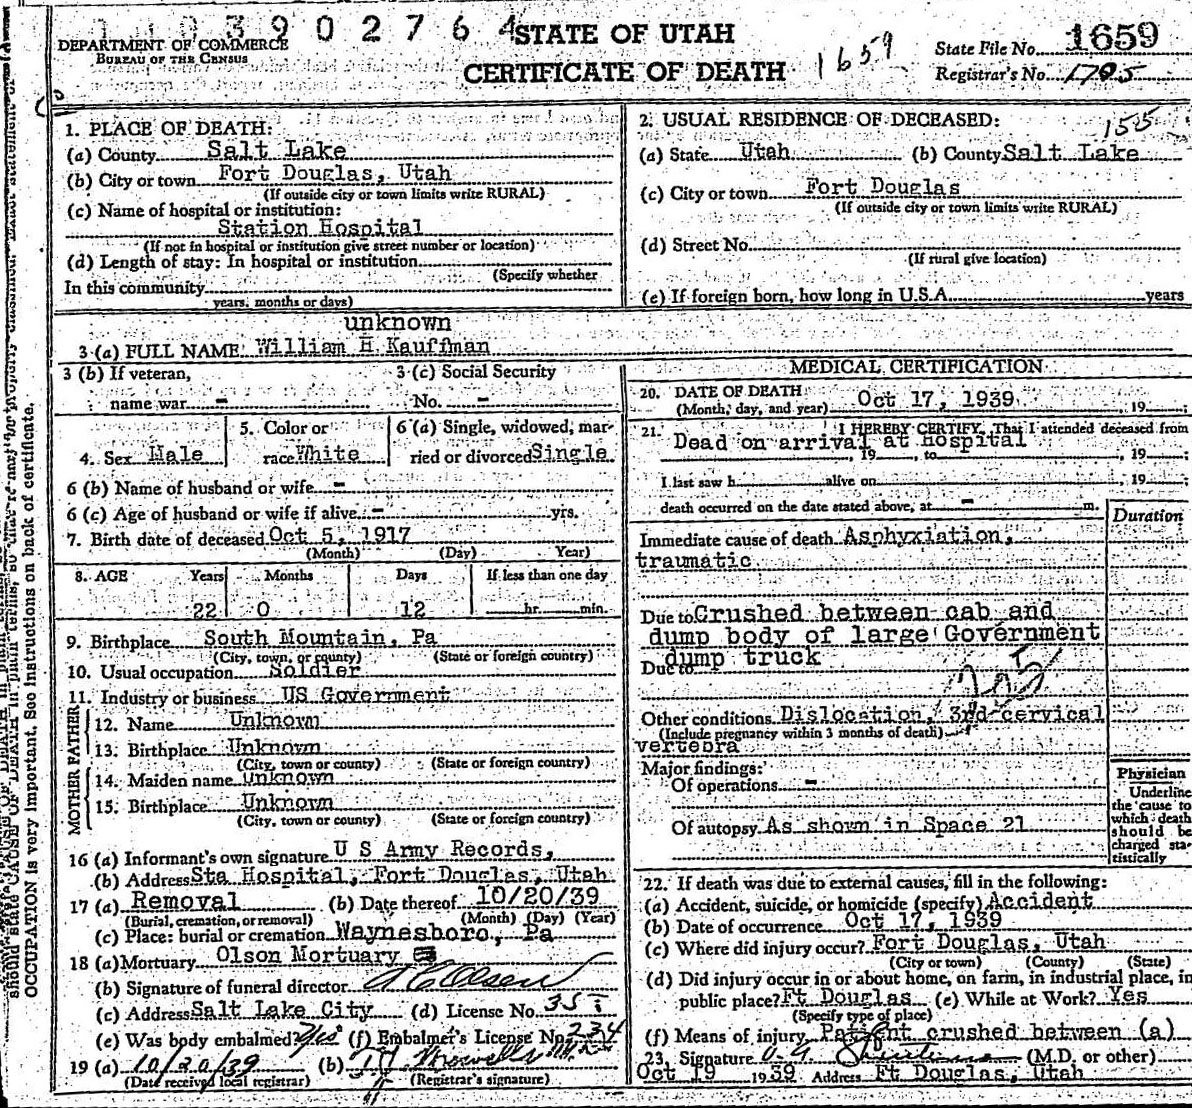 1 0 3 9 0 2 7 6 4
STATE OF UTAH
DEPARTMENT OF COMMERCE
BUREAU OF THE CENSUS
CERTIFICATE OF DEATH
1659
State File No. 1659
Registrar's No. 1705
1. PLACE OF DEATH:
(a) County Salt Lake
(b) City or town Fort Douglas, Utah
(If outside city or town limits write RURAL)
(c) Name of hospital or institution:
Station Hospital
(If not in hospital or institution give street number or location)
(d) Length of stay: In hospital or institution
(Specify whether
In this community
years, months or days)
2. USUAL RESIDENCE OF DECEASED:
155
(a) State Utah (b) County Salt Lake
(c) City or town Fort Douglas
(If outside city or town limits write RURAL)
(d) Street No.
(If rural give location)
(e) If foreign born, how long in U.S.A. years
unknown
3 (a) FULL NAME William H Kauffman
3 (b) If veteran, 3 (c) Social Security
name war - No. -
4. Sex Male 5. Color or race White 6 (a) Single, widowed, married or divorced Single
6 (b) Name of husband or wife -
6 (c) Age of husband or wife if alive - yrs.
7. Birth date of deceased Oct 5, 1917
(Month) (Day) Year)
8. AGE Years Months Days If less than one day
22 0 12 hr. min.
9. Birthplace South Mountain, Pa
(City, town, or county) (State or foreign country)
10. Usual occupation Soldier
11. Industry or business US Government
FATHER
12. Name Unknown
13. Birthplace Unknown
(City, town or county) (State or foreign country)
MOTHER
14. Maiden name Unknown
15. Birthplace Unknown
(City, town or county) (State or foreign country)
16 (a) Informant's own signature U S Army Records,
(b) Address Sta Hospital, Fort Douglas, Utah
17 (a) Removal (b) Date thereof 10/20/39
(Burial, cremation, or removal) (Month) (Day) (Year)
(c) Place: burial or cremation Waynesboro, Pa
18 (a) Mortuary Olson Mortuary
(b) Signature of funeral director
(c) Address Salt Lake City (d) License No. 35
(e) Was body embalmed? Yes (f) Embalmer's License No. 234
19 (a) 10/20/39 (b)
(Date received local registrar) (Registrar's signature)
MEDICAL CERTIFICATION
20. DATE OF DEATH
(Month, day, and year) Oct 17, 1939, 19 ;
21. I HEREBY CERTIFY, That I attended deceased from
Dead on arrival at hospital
, 19 , to , 19 ;
I last saw h alive on , 19 ;
death occurred on the date stated above, at - m.
Duration
Immediate cause of death Asphyxiation,
traumatic
Due to Crushed between cab and
dump body of large Government
dump truck
Due to
205
Other conditions Dislocation, 3rd cervical
(Include pregnancy within 3 months of death)
vertebra
Major findings:
Of operations -
Of autopsy As shown in Space 21
Physician
Underline
the cause to
which death
should be
charged sta-
tistically
22. If death was due to external causes, fill in the following:
(a) Accident, suicide, or homicide (specify) Accident
(b) Date of occurrence Oct 17, 1939
(c) Where did injury occur? Fort Douglas, Utah
(City or town) (County) (State)
(d) Did injury occur in or about home, on farm, in industrial place, in
public place? Ft Douglas (e) While at Work? Yes
(Specify type of place)
(f) Means of injury Patient crushed between (a)
23. Signature (M.D. or other)
Oct 19 1939 Address Ft Douglas, Utah
should state CAUSE OF DEATH in plain terms, so that it may be properly classified. Exact statement of
OCCUPATION is very important. See instructions on back of certificate.